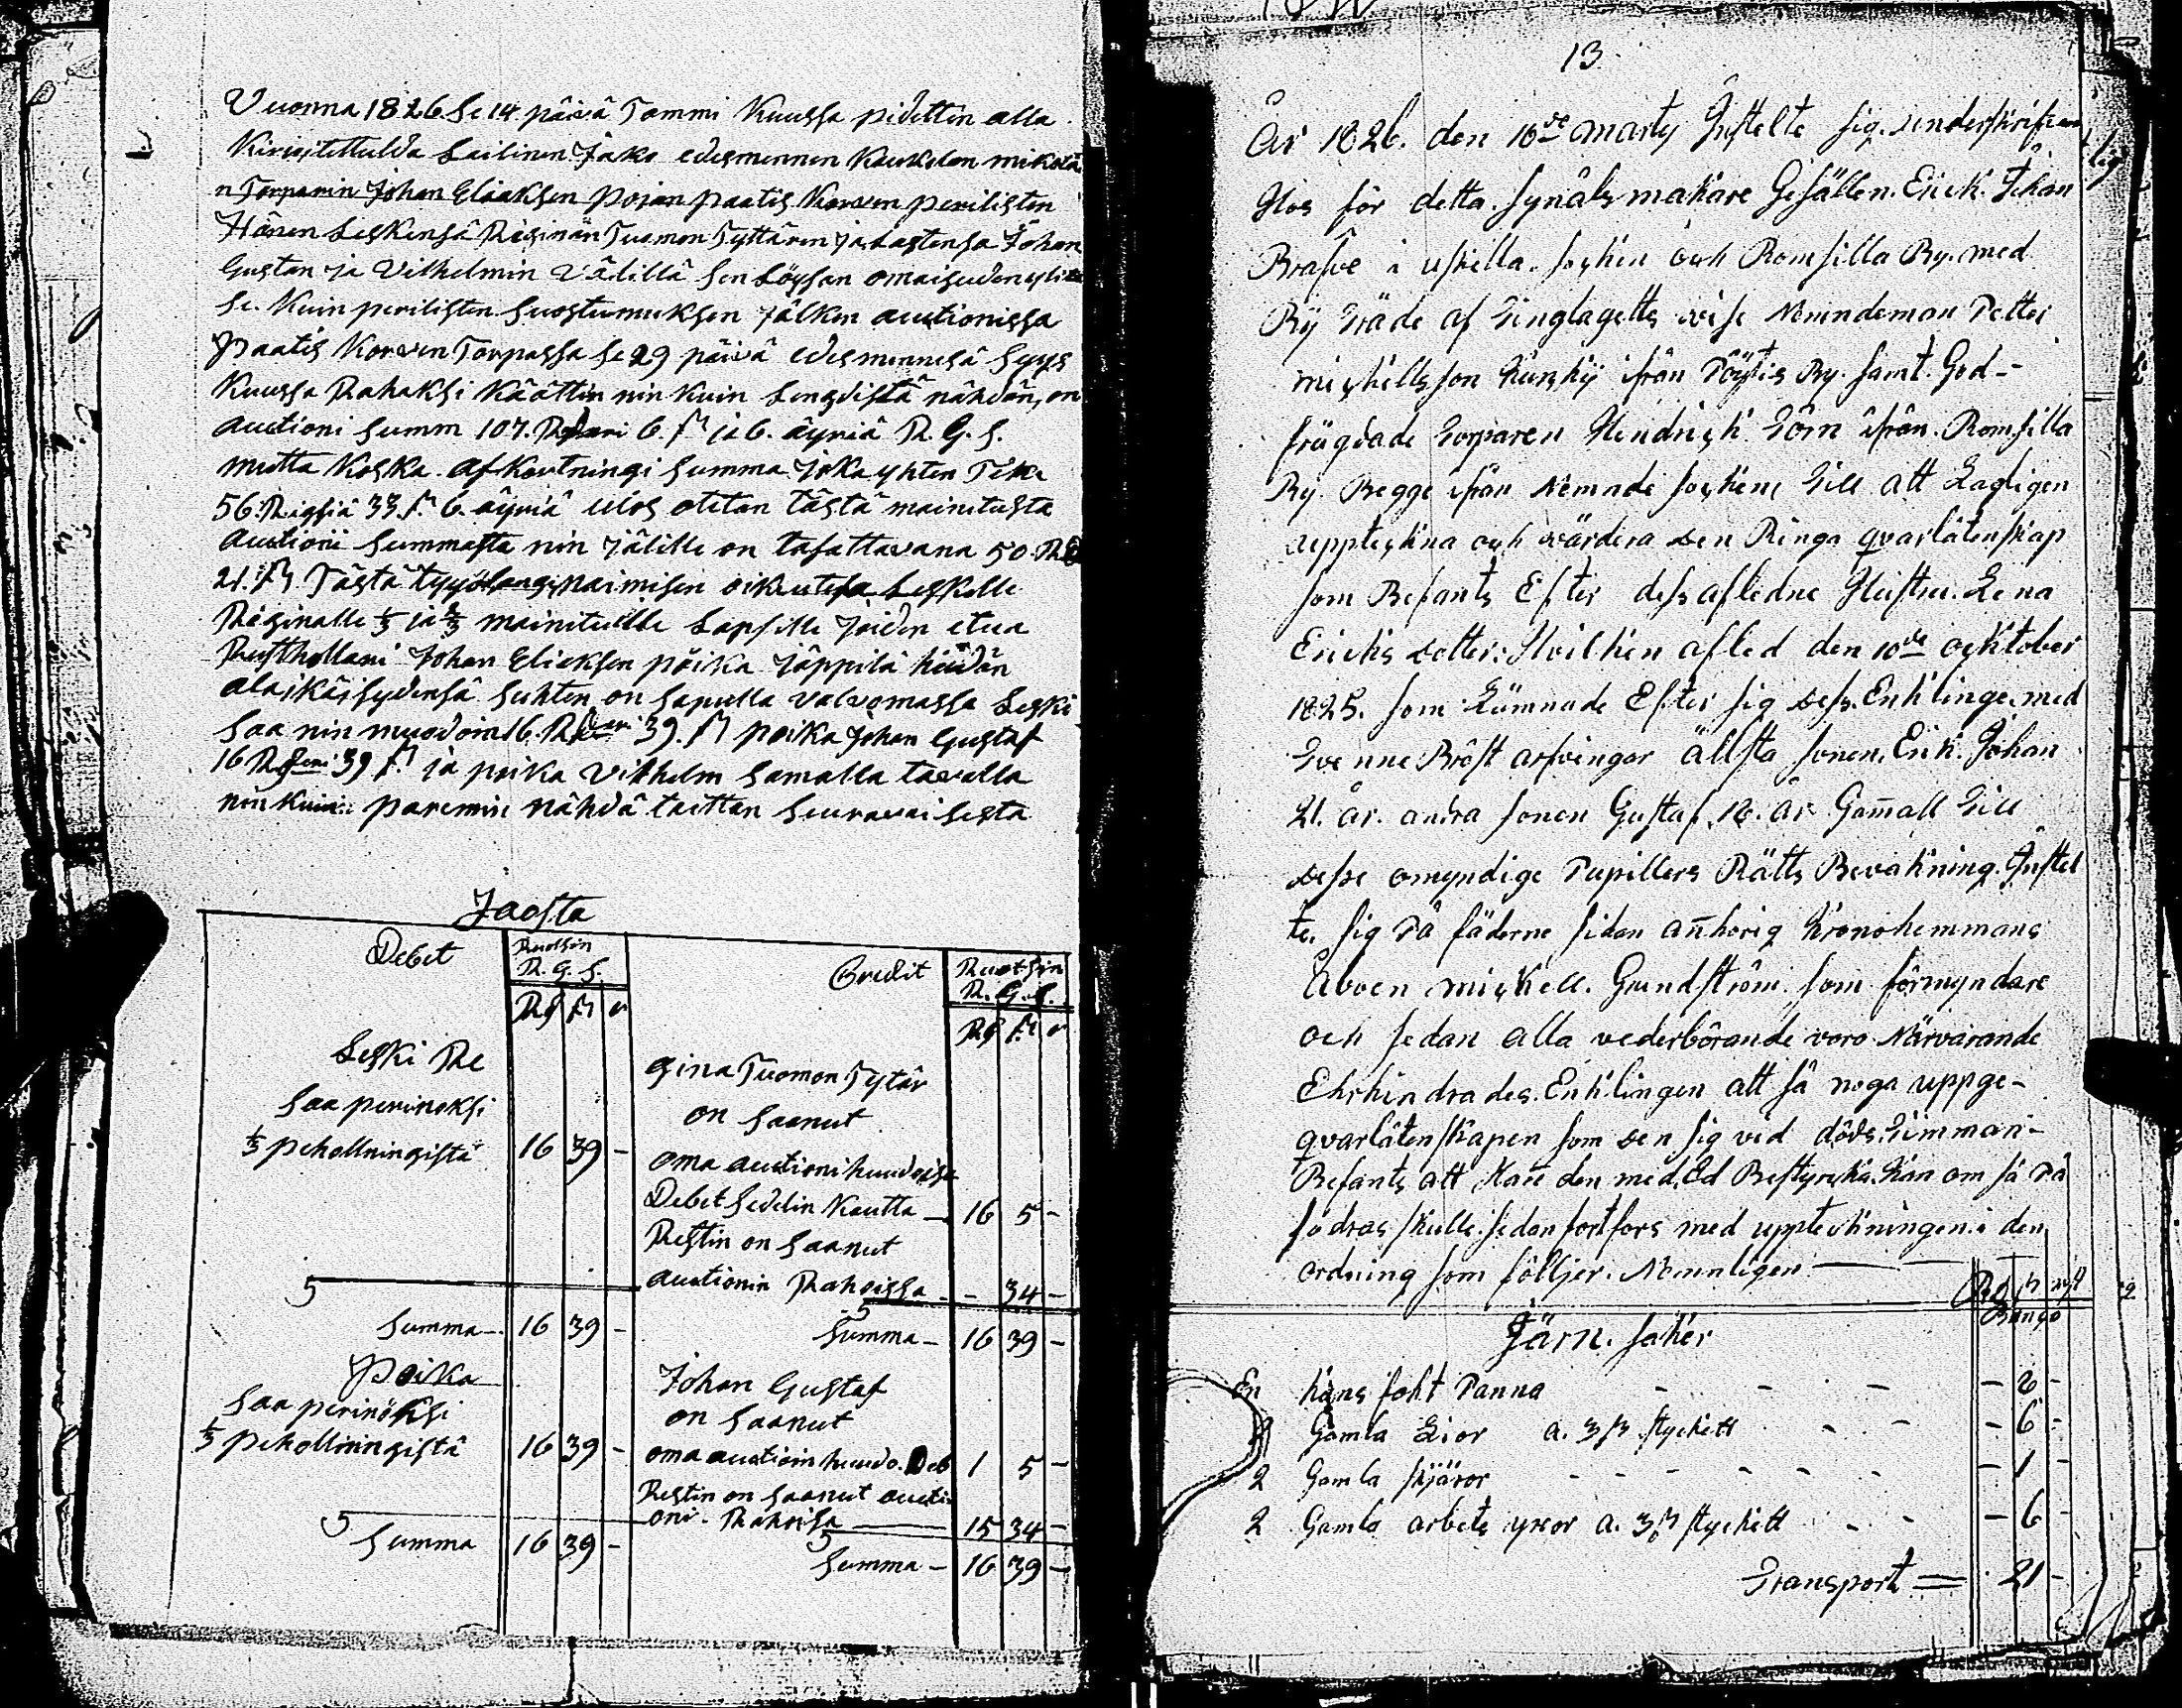 Vuonna 1826 se 14 päivä Tammi Kuussa pidettin alla
Kiriojtettulda Lailinen Jako edesmennen Kaukolan
n Torparin Johan Eliaksen pojan paatis Korven perilisten
Hänen Leskensä Reginan Tuomon Tyttären ja Lastensa Johan
Gustan ja Vilhelmin Välillä sen Löysän omaisuden
se. Kuin perilisten Suostumuksen jälken auctionissa
Paatis Korven Torpassa se 29 päivä edesmennesä Syys
Kuussa Rahaksi Käättin nin kuin Lengdistä nähdän, on
Auctioni Summ 107. 6. ß ja 6. äyriä R. G. S.
mutta Koska afkortningi Summa joka yhten Teke
56. Rigsiä 33. ß 6. äyriä ulos otetan tästä mainitusta
Auctioni Summasta nin jälille on tasattavana 50. R
21. ß Tästä naimisen oikeutesa Leskelle
Reginalle ⅓ ja ⅔ mainituille Lapsille joiden etua
Rusthollari Johan Elieksen poika Jäppilä heidän
alaikäisydensä suhten on sapulla valvomassa Leski
saa nin muodoin 16. 39. ß poika Johan Gustaf
16 39 ß ja poika Vilhelm samalla tavalla
nin kuin paremin nähdä taittan seuravaisesta
Jaosta
Debet Ruotsin R. G. S. Credit Ruotsin R. G. S.
Rg ß r Rg ß r
Leski Re gina Tuomon Tytär
Saa perinöksi on Saanut
⅓ pehollningistä 16 39 - oma auctioni huudoisa
Debet Sedelin Kautta - 16 5 -
Restin on Saanut
Auctionin Rahoissa - - 34 -
Summa - 16 39 - Summa - 16 39 -
Poika Johan Gustaf
Saa perinöksi on Saanut
⅓ pehollningistä 16 39 - oma auctioin huudo. Deb 1 5 -
Restin on Saanut aucti
oni - Rahoisa 15 34 -
Summa 16 39 - Summa - 16 39 -
13
År 1826. den 16de marty Instelte sig underskrifven
Hos för detta synåls makare Gesällen. Erick Johan
Brasve i uskella sochen och Romsilla By. med
By Träde af Tinglagetts vise Nemndeman Petter
michellsson Kurskÿ ifrån Pöytis By. samt God-
frägdade Torparen Hendrich Törn ifrån Romsilla
By. Begge ifrån Nemnde sochen, Till att Lagligen
upptechna och värdera den Ringa qvarlåtenskap
som Befants Efter dess afledne Hustru. Lena
Ericks dotter: Hvilken afled den 10de ochtober
1825. som Lämnade Efter sig dess. Enklinge. med
Tvenne Bröst arfvingar ällsta sonen, Erik Johan
21. år. andra sonen Gustaf, 18. år Gam̄all Till
desse omyndige Pupillers Rätts Bevakning. Instel
te, sig På fäderne sidan an̄horig Kronohemmans
Åboen mickell. Grundström som förmyndare
och sedan alla vederbörande voro Närvarande
Ehrhindrades. Enklingen att så noga uppge-
qvarlåtenskapen som den sig vid döds Timman-
Befants att Han̄ den med, Ed Bestyrcka Kan om så På
fodras skulle. sedan fortfors med uppteckningen i den
ordning som fölljer. Nemnligen
Järn. saker
En hans foht Panna - - - - 2 -
2 Gamla Lior a. 3 ß styckett - - - 6 -
2 Gamla skjäror - - - - - - - 1 -
2 Gamla arbets yxor a. 3 ß styckett - - - 6 -
Transport = 21 -